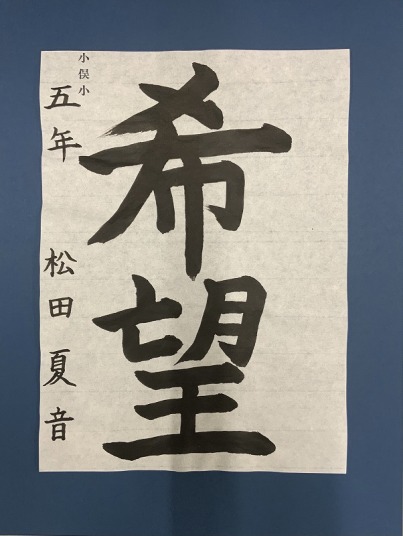 希望
小俣小
五年 松田夏音